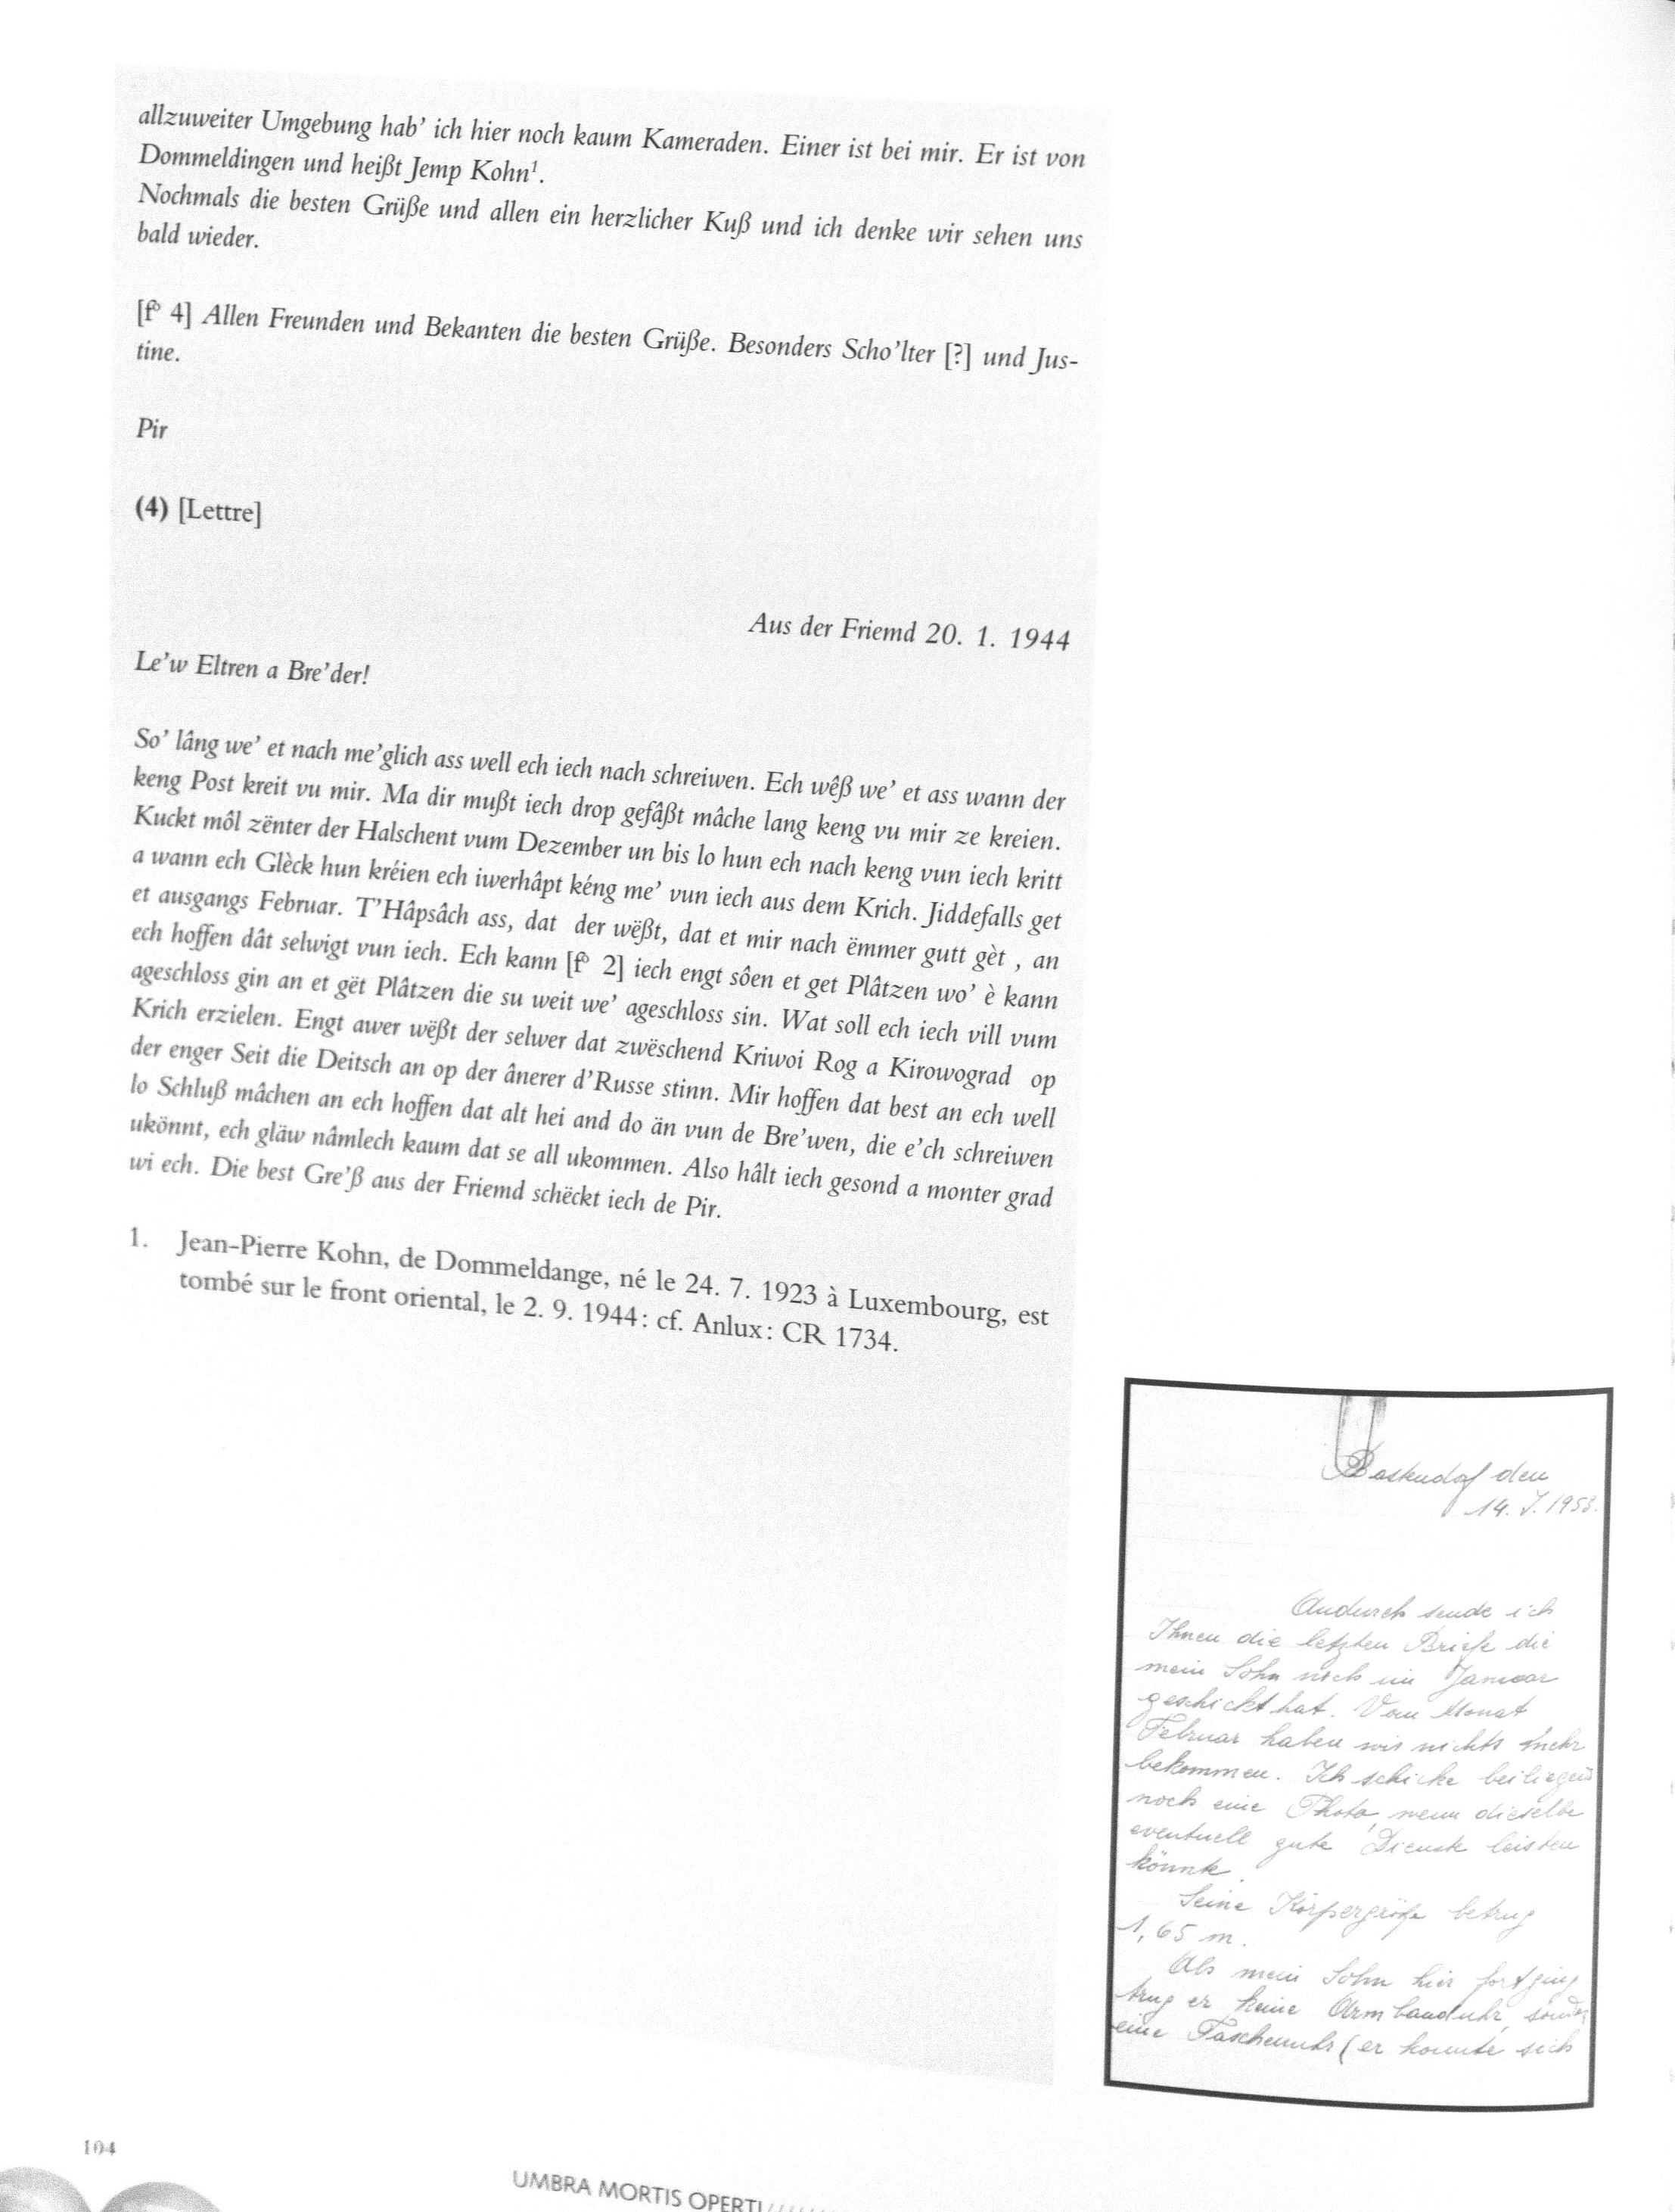 allzuweiter Umgebung hab’ ich hier noch kaum Kameraden. Einer ist bei mir. Er ist von
Dommeldingen und heißt Jemp Kohn¹.
Nochmals die besten Grüße und allen ein herzlicher Kuß und ich denke wir sehen uns
bald wieder.
[f° 4] Allen Freunden und Bekanten die besten Grüße. Besonders Scho’lter [?] und Jus-
tine.
Pir
(4) [Lettre]
Aus der Friemd 20. 1. 1944
Le’w Eltren a Bre’der!
So’ lâng we’ et nach me’glich ass well ech iech nach schreiwen. Ech wêß we’ et ass wann der
keng Post kreit vu mir. Ma dir mußt iech drop gefâßt mâche lang keng vu mir ze kreien.
Kuckt môl zënter der Halschent vum Dezember un bis lo hun ech nach keng vun iech kritt
a wann ech Glèck hun kréien ech iwerhâpt kéng me’ vun iech aus dem Krich. Jiddefalls get
et ausgangs Februar. T’Hâpsâch ass, dat der wëßt, dat et mir nach ëmmer gutt gèt , an
ech hoffen dât selwigt vun iech. Ech kann [f° 2] iech engt sôen et get Plâtzen wo’ è kann
ageschloss gin an et gët Plâtzen die su weit we’ ageschloss sin. Wat soll ech iech vill vum
Krich erzielen. Engt awer wëßt der selwer dat zwëschend Kriwoi Rog a Kirowograd op
der enger Seit die Deitsch an op der ânerer d’Russe stinn. Mir hoffen dat best an ech well
lo Schluß mâchen an ech hoffen dat alt hei and do än vun de Bre’wen, die e’ch schreiwen
ukönnt, ech gläw nâmlech kaum dat se all ukommen. Also hâlt iech gesond a monter grad
wi ech. Die best Gre’ß aus der Friemd schëckt iech de Pir.
1. Jean-Pierre Kohn, de Dommeldange, né le 24. 7. 1923 à Luxembourg, est
tombé sur le front oriental, le 2. 9. 1944 : cf. Anlux : CR 1734.
den
14. 7. 1953.
Andurch sende ich
Ihnen die letzten Briefe die
mein Sohn noch im Januar
geschickt hat. Vom Monat
Februar haben wir nichts mehr
bekommen. Ich schicke beiliegend
noch eine Photo, wenn dieselbe
eventuell gute Dienste leisten
könnte.
Seine Körpergröße betrug
1,65 m.
Als mein Sohn hier fortging
trug er keine Armbanduhr,
eine Taschenuhr (er konnte sich
104
UMBRA MORTIS OPERTI